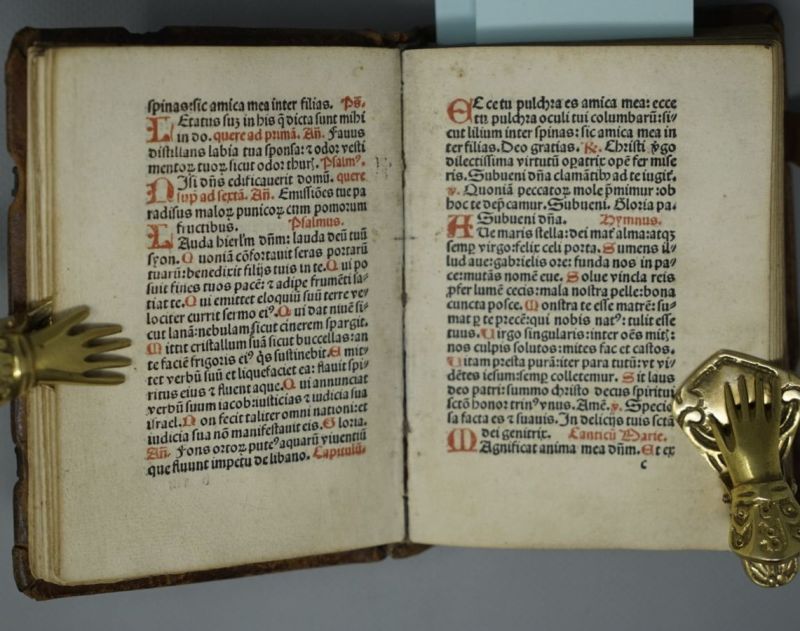 spinas:sic amica mea inter filias. Ps̄.
LEtatus suȝ in his q̄ dicta sunt mihi
in do. quere ad primā. Añ. Fauus
distillans labia tua sponsa: ⁊ odor vesti
mentoꝝ tuoꝝ sicut odor thur̄. Psalmꝰ.
NIsi dñs edificauerit domū. quere
sup̄ ad sextā. Añ. Emissiões tue pa
radisus maloꝝ punicoꝝ cum pomorum
fructibus. Psalmus.
LAuda hierl̄m dñm: lauda deū tuū
syon. Quoniā cõfortauit seras portarū
tuarū: benedixit filijs tuis in te. Qui po
suit fines tuos pacē: ⁊ adipe frumēti sa⸗
tiat te. Qui emittet eloquiū suū terre ve⸗
lociter currit sermo eiꝰ. Qui dat niuē si⸗
cut lanā: nebulam sicut cinerem spargit.
Mittit cristallum suā sicut buccellas: an
te faciē frigoris eiꝰ q̄s sustinebit. Emit⸗
tet verbū suū et liquefaciet ea: flauit spi⸗
ritus eius ⁊ fluent aque. Qui annunciat
verbū suum iacob: iusticias ⁊ iudicia sua
israel. Non fecit taliter omni nationi: et
iudicia sua nō manifestauit eis. Gloria.
Añ. Fons ortoꝝ puteꝰ aquarū viuentiū
que fluunt impetu de libano. Capitulū.
ECce tu pulchra es amica mea: ecce
tu pulchra oculi tui columbarū: si⸗
cut lilium inter spinas: sic amica mea in
ter filias. Deo gratias. ℟. Christi ꝟgo
dilectissima virtutū oꝑatrix opē fer mise
ris. Subueni dña clamātibꝰ ad te iugit̄.
v. Quoniā peccatoꝝ mole p̄mimur: ob
hoc te dep̄camur. Subueni. Gloria pa.
Subueni dña. Hymnus.
AUe maris stella: dei mat̄ alma: atqȝ
semꝑ virgo: felix celi porta. Sumens il⸗
lud aue: gabrielis ore: funda nos in pa⸗
ce: mutās nomē eue. Solue vincla reis
ꝓfer lumē cecis: mala nostra pelle: bona
cuncta posce. Monstra te esse matrē: su⸗
mat ꝑ te p̄cē: qui nobis natꝰ: tulit esse
tuus. Uirgo singularis: inter oēs mitꝭ:
nos culpis solutos: mites fac et castos.
Uitam presta purā: iter para tutū: vt vi⸗
dētes iesum: semꝑ colletemur. Sit laus
deo patri: summo christo decus spiritui
sctō honor trinꝰ vnus. Amē. v. Specio
sa facta es ⁊ suauis. In delicijs tuis sctā
dei genitrix. Canticū Marie.
MAgnificat anima mea dñm. Et ex
c